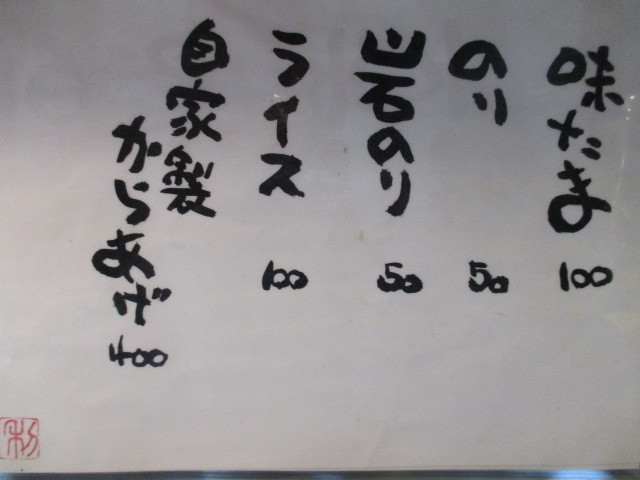 味たま 100
のり 50
岩のり 50
ライス 100
自家製
からあげ 400